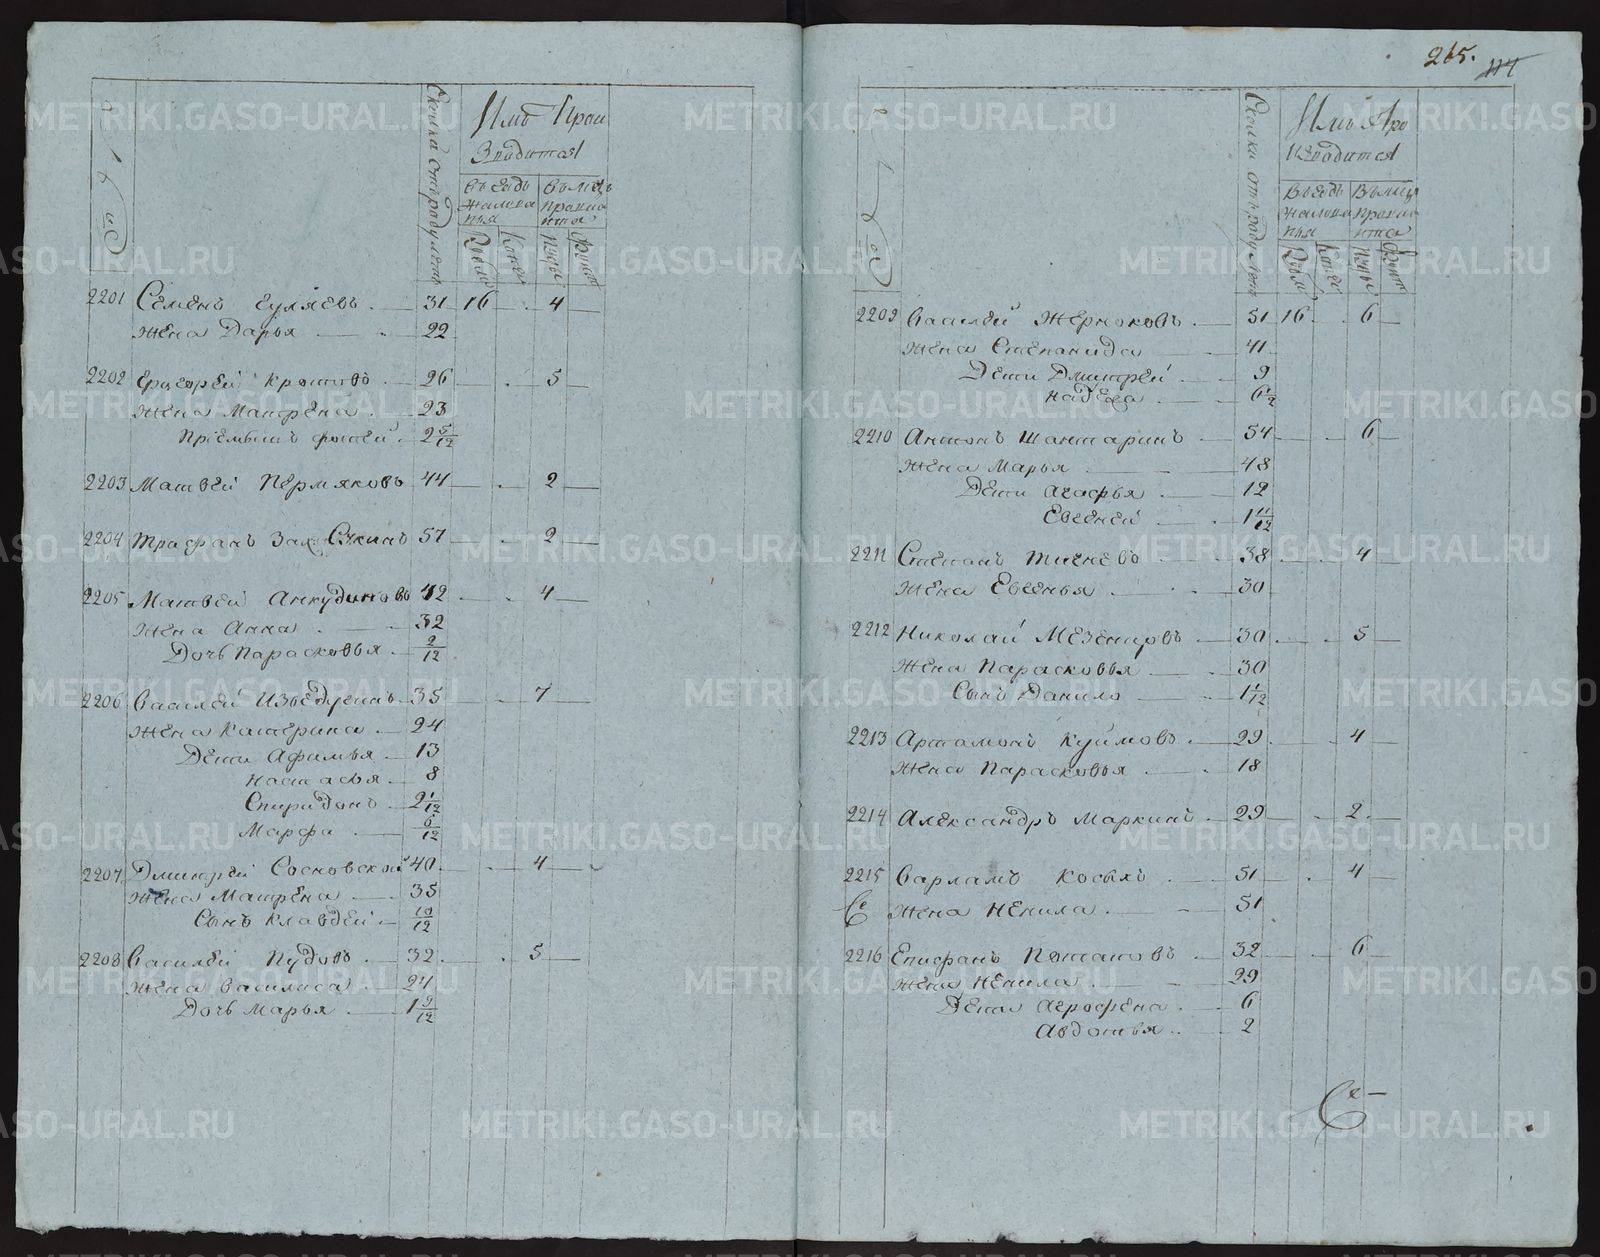 265.
Сколка отъ роду летъ
Имъ Прои
зводится
въ годъ
жалова
нья
въ месецъ
правиа
нта
Рубли
Копеи
пуды
фунт
2201 Семенъ Гуляевъ 31 16 4
Жена Дарья 22
2202 26 5
Жена Матрена 23
Пріемышъ 2 5/12
2203 Матвей Пермяковъ 44 2
2204 Трифанъ 57 2
2205 Матвей Анкудиновъ 42 4
Жена Анна 32
Дочь Парасковья 2/12
2206 Василей 35 7
Жена Катерина 24
Дети Афимья 13
Настасья 8
Спиридонъ 2 1/12
Марфа 6/12
2207 Дмитрей Сосновской 40 4
Жена Матрена 35
Сынъ Клавдей 10/12
2208 Василей Пудовъ 32 5
Жена Василиса 24
Дочь Марья 1 9/12
Сколки отъ роду летъ
Имъ Про
изводится
въ годъ
жалова
нья
въ месц
правиа
нта
Рубли
Копеи
пуды
фунт
2209 Василей Жерноковъ 51 16 6
Жена Степанида 41
Дети Дмитрей 9
Надежа 6 1/2
2210 Антонъ Шантаринъ 54 6
Жена Марья 48
Дети Агафья 12
Евгеней 1 11/12
2211 Степанъ Тиеневъ 38 4
Жена Евгенья 30
2212 Николай Мезенцовъ 30 5
Жена Парасковья 30
Сынъ Данило 1 1/12
2213 Артамонъ Куимовъ 29 4
Жена Парасковья 18
2214 Александръ Маркинъ 29 2
2215 Варламъ Косыхъ 51 4
Жена Ненила 51
2216 Епифанъ Потаповъ 32 6
Жена Ненила 29
Дети Агрофена 6
Авдотья 2
METRIKI.GASO-URAL.RU